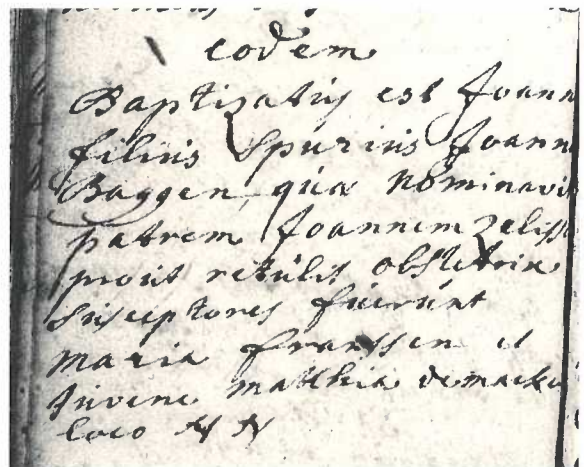 eodem
Baptizatus est Joann
filius spurius Joann
Baggen, quæ nominavit
patrem Joannem zeliss
prout retulit obstetrix
susceptores fuerunt
Maria Franssen et
Juvene matthia demacke
loco N N